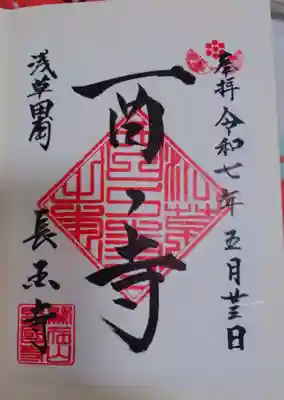 奉拝 令和七年五月廿三日
酉ノ寺
浅草田圃
長国寺